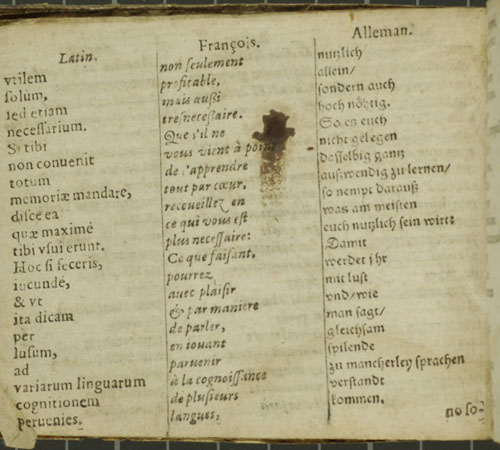 Latin.
vtilem
ſolum,
ſed etiam
neceſſarium.
Si tibi
non conuenit
totum
memoriæ mandare,
diſce ea
quæ maximè
tibi vſui erunt.
Hoc ſi feceris,
iucundè,
& vt
ita dicam
per
luſum,
ad
variarum linguarum
cognitionem
peruenies.
François.
non ſeulement
profitable,
mais außi
tresneceſſaire.
Que s'il ne
vous vient à
de l'apprendre
tout par cœur,
recoueillez en
ce qui vous eſt
plus neceſſaire:
Ce que faiſant,
pourrez
auec plaiſir
& par maniere
de parler,
en iouant
paruenir
à la cognoiſſance
de pluſieurs
langues,
Alleman.
nutzlich
allein/
ſondern auch
hoch nöhtig.
So es euch
nicht gelegen
daſſelbig gantz
außwendig zu lernen/
ſo nempt darauß
was am meiſten
euch nutzlich ſein wirtt
Damit
werdet jhr
mit luſt
vnd/wie
man ſagt/
gleichſam
ſpilende
zu mancherley ſprachen
verſtandt
kommen.
no ſo-